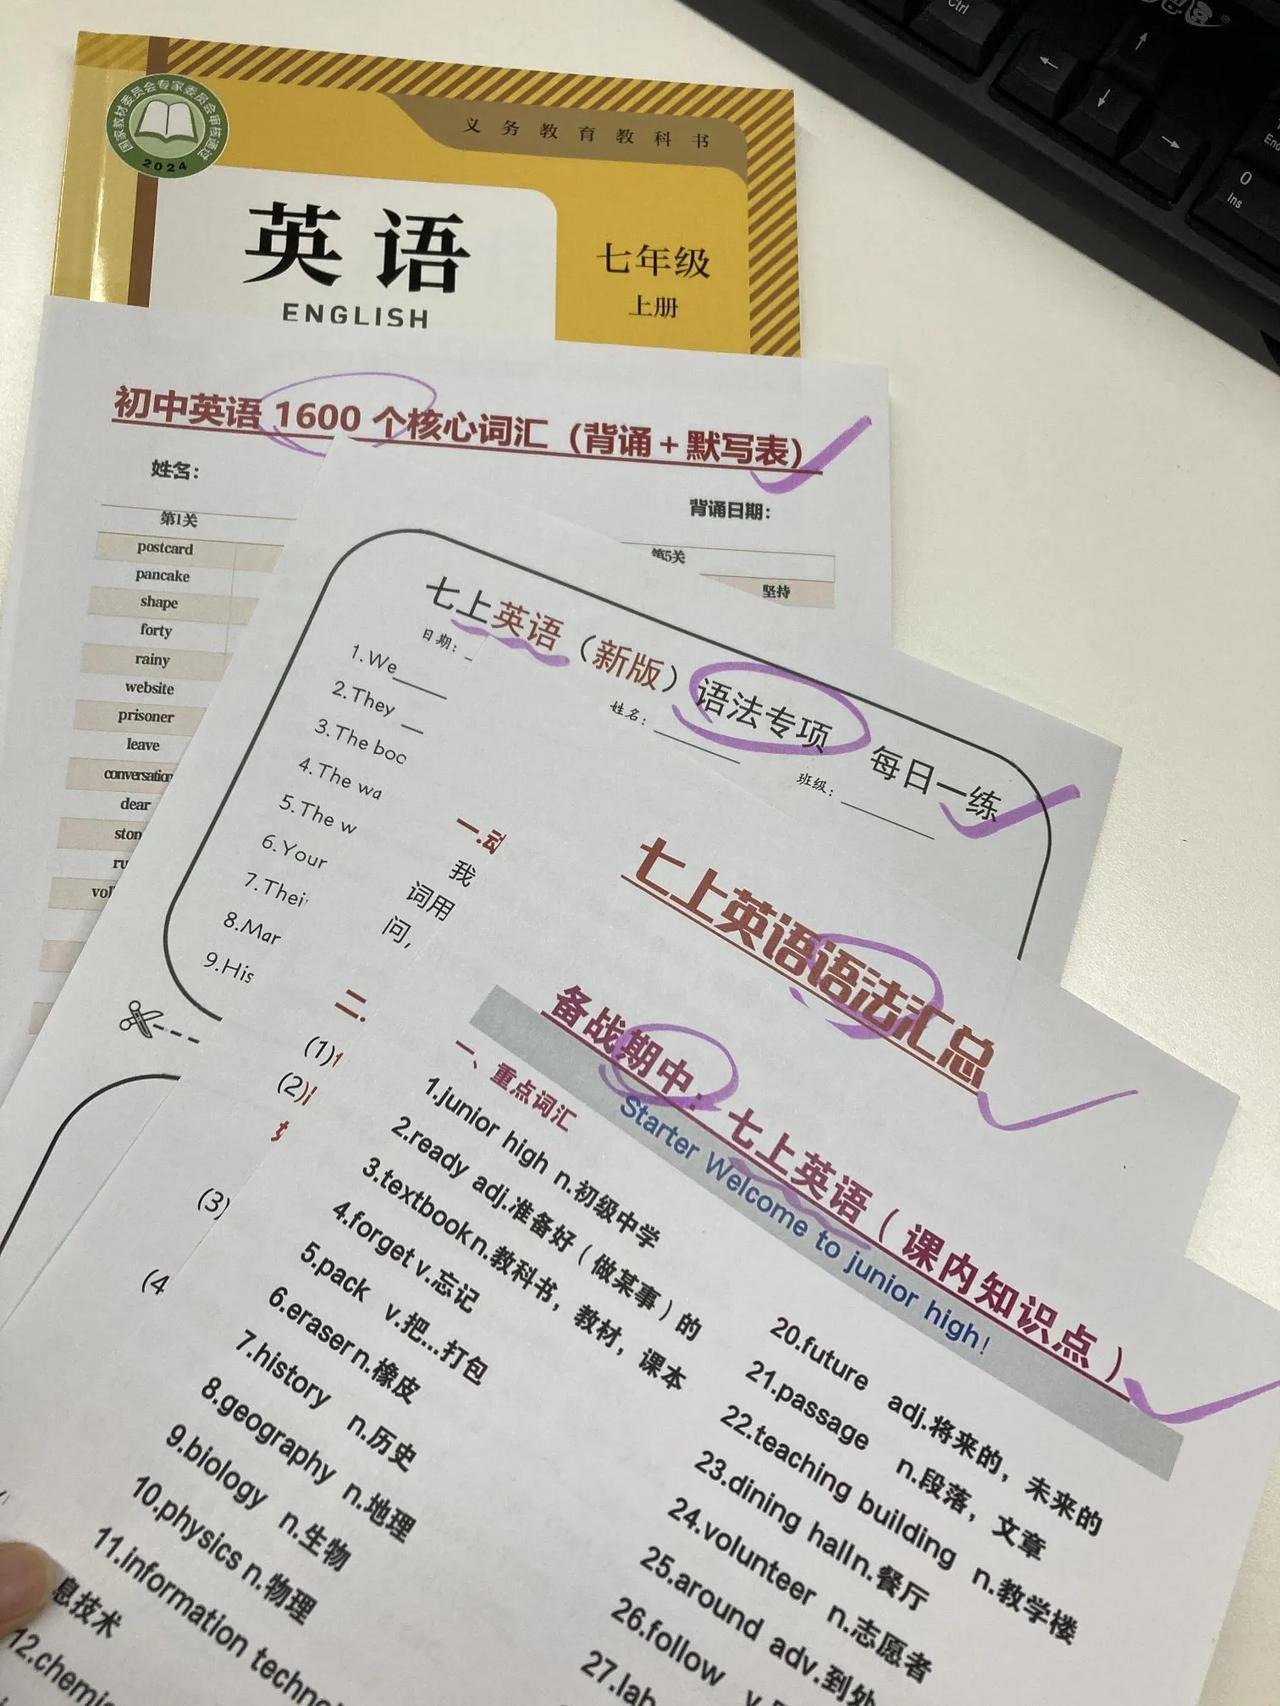 国家教材委员会专家委员会审核通过
2024
义务教育教科书
英语
ENGLISH
七年级
上册
初中英语 1600 个核心词汇（背诵+默写表）
姓名：
背诵日期：
第1关
第5关
postcard
坚持
pancake
shape
forty
rainy
website
prisoner
leave
conversation
dear
七上英语（新版）语法专项 每日一练
日期：
姓名：
班级：
1.We
2.They
3.The boo
4.The wa
5.The w
6.Your
7.Thei
8.Mar
9.His
七上英语语法汇总
一.动
我
词用
问，
二.
(1)
(2)
(3)
(4
备战期中：七上英语（课内知识点）
Starter Welcome to junior high!
一、重点词汇
1.junior high n.初级中学
2.ready adj.准备好（做某事）的
3.textbook n.教科书，教材，课本
4.forget v.忘记
5.pack v.把...打包
6.eraser n.橡皮
7.history n.历史
8.geography n.地理
9.biology n.生物
10.physics n.物理
11.information techno
息技术
12.chemis
20.future adj.将来的，未来的
21.passage n.段落，文章
22.teaching building n.教学楼
23.dining hall n.餐厅
24.volunteer n.志愿者
25.around adv.到处
26.follow v.
27.lab
Ctrl
End
0
Ins